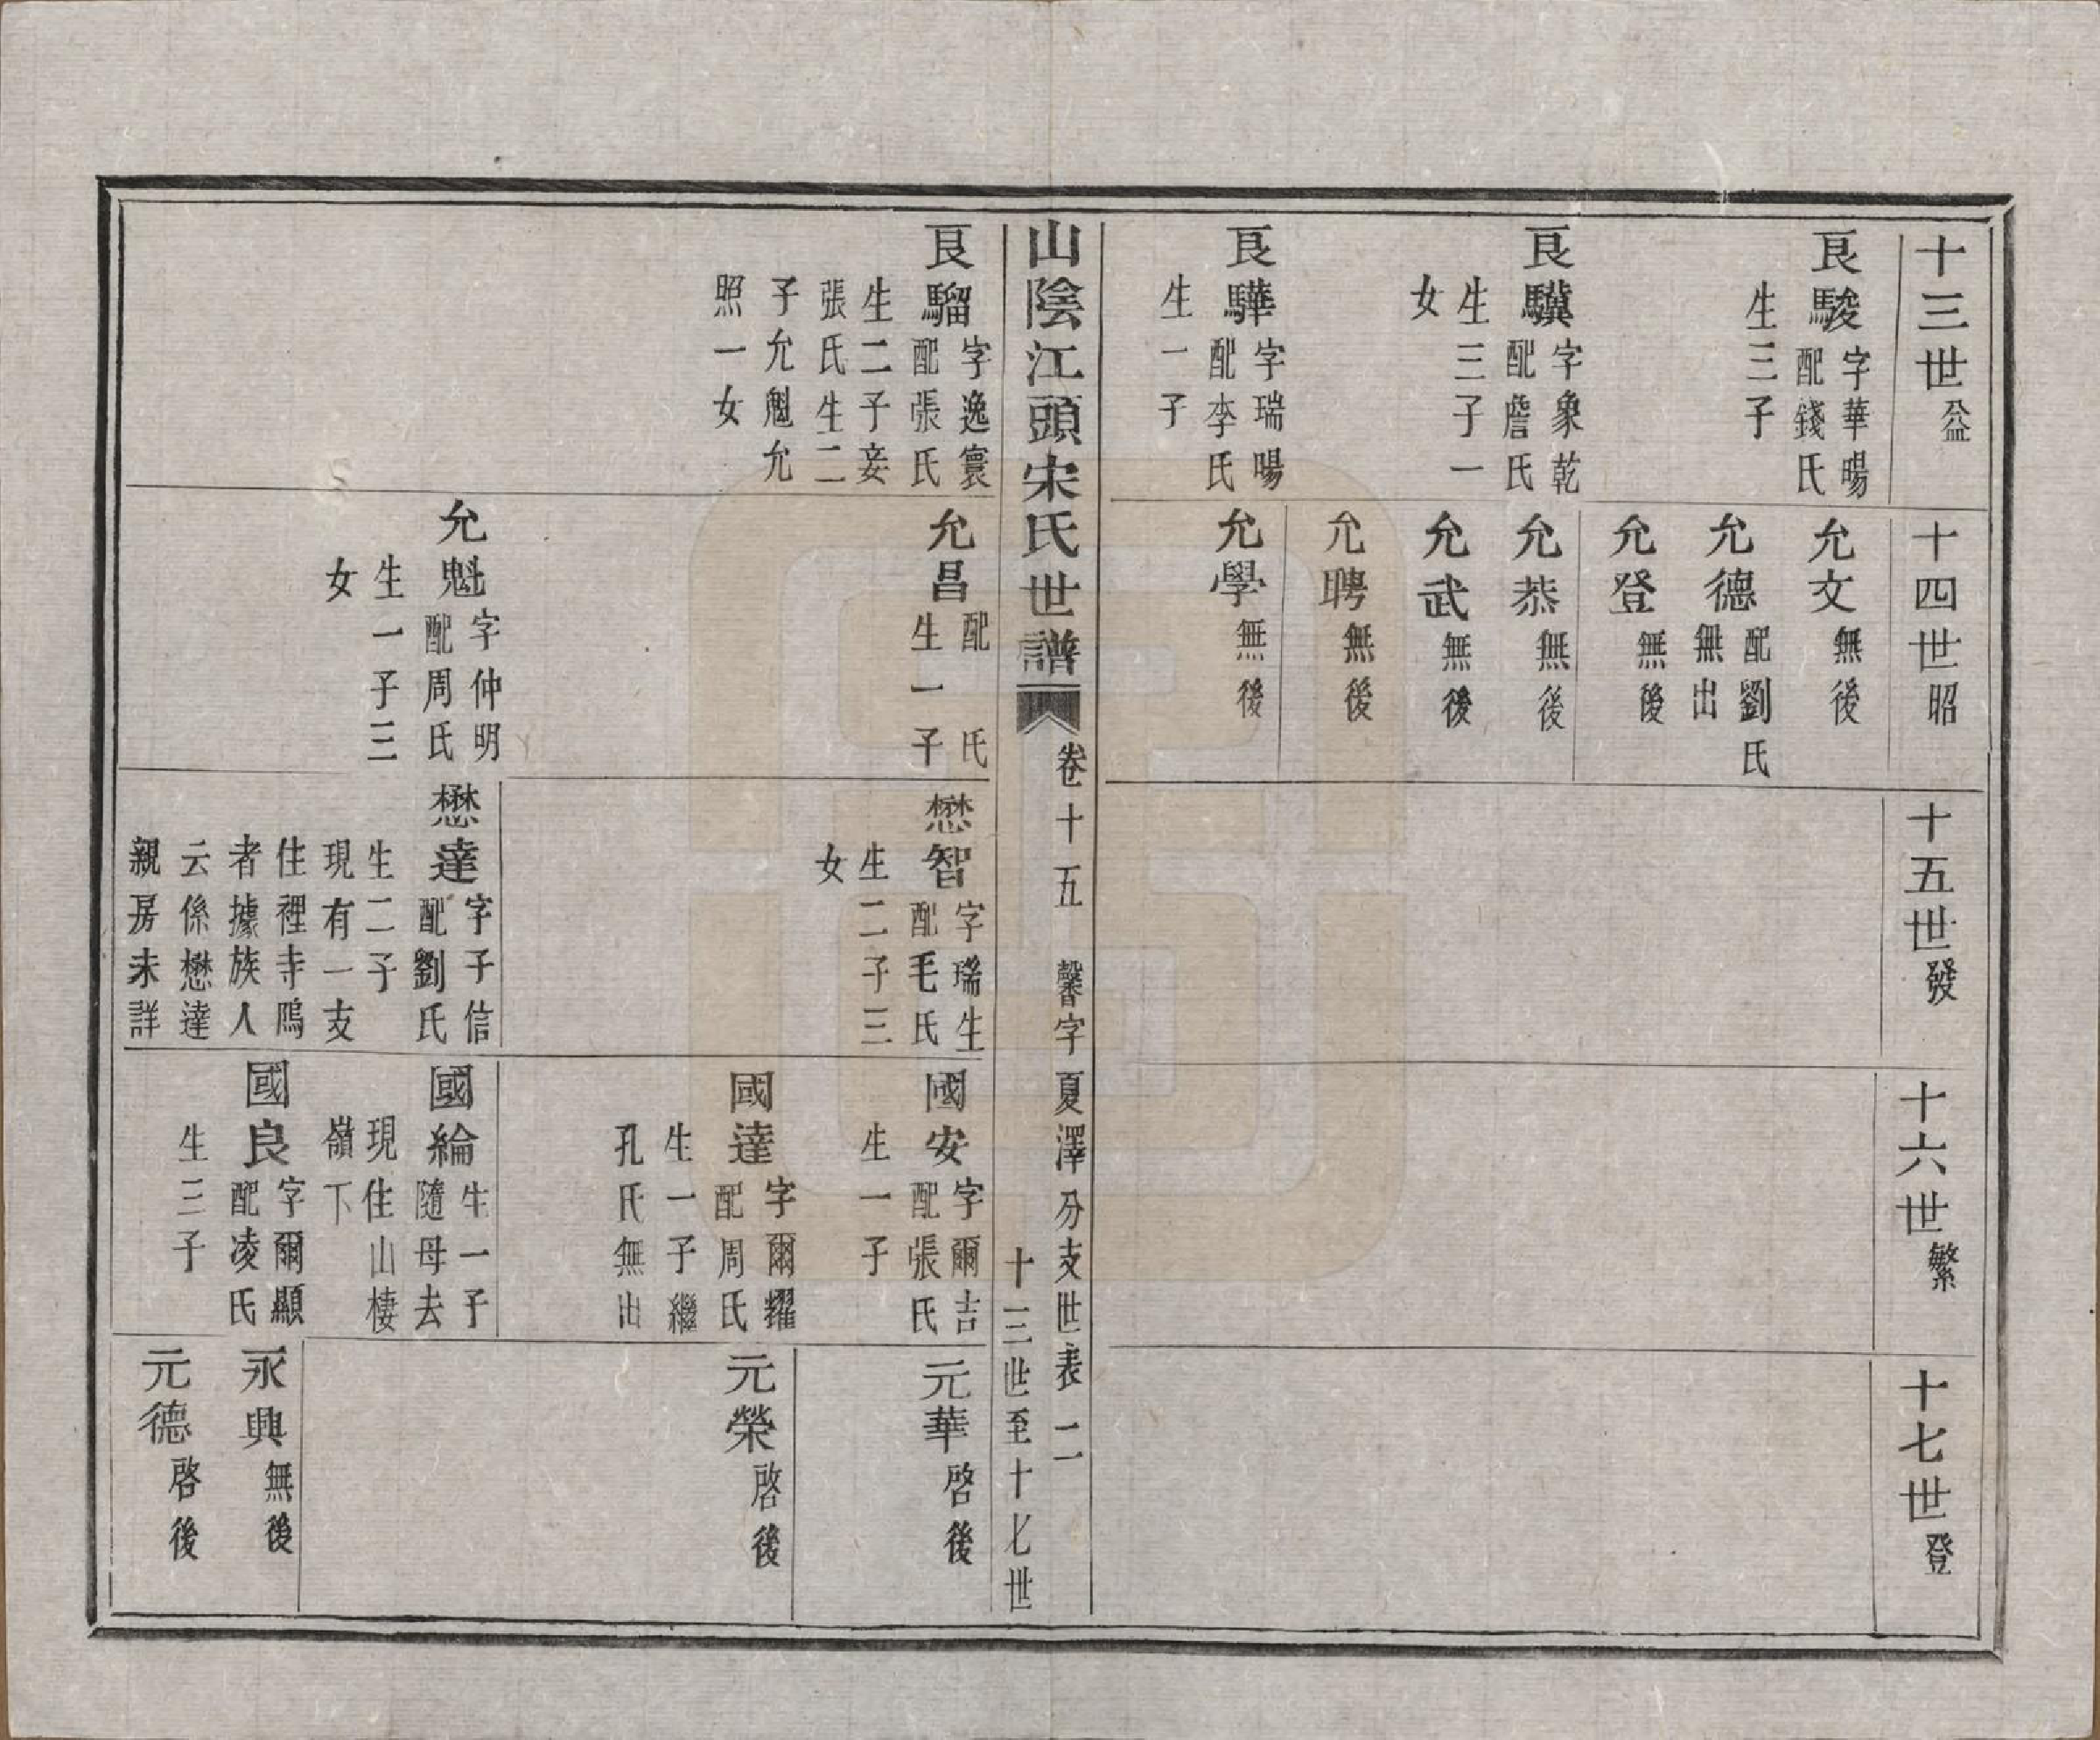 十三世公益
良駿 字華暘 配錢氏
生三子
良驥 字象乾 配詹氏
生三子一
女
良驊 字瑞暘 配李氏
生一子
十四世昭
允文 無後
允德 配劉氏 無出
允登 無後
允恭 無後
允武 無後
允聘 無後
允學 無後
十五世發
十六世繁
十七世登
山陰江頭宋氏世譜
卷十五 馨字 夏澤分支世表 二
十三世至十七世
良騮 字逸寰 配張氏
生二子妾
張氏生二
子允魁允
照一女
允昌 配 氏 生一子
允魁 字仲明 配周氏
生一子三
女
懋智 字瑞生 配毛氏
生二子三
女
懋達 字子信 配劉氏
生二子
現有一支
住裡寺隖
者據族人
云係懋達
親房未詳
國安 字爾吉 配張氏
生一子
國達 字爾耀 配周氏
生一子繼
孔氏無出
國綸 生一子 隨母去
現住山棲
嶺下
國良 字爾顯 配凌氏
生三子
元華 啓後
元榮 啓後
永興 無後
元德 啓後